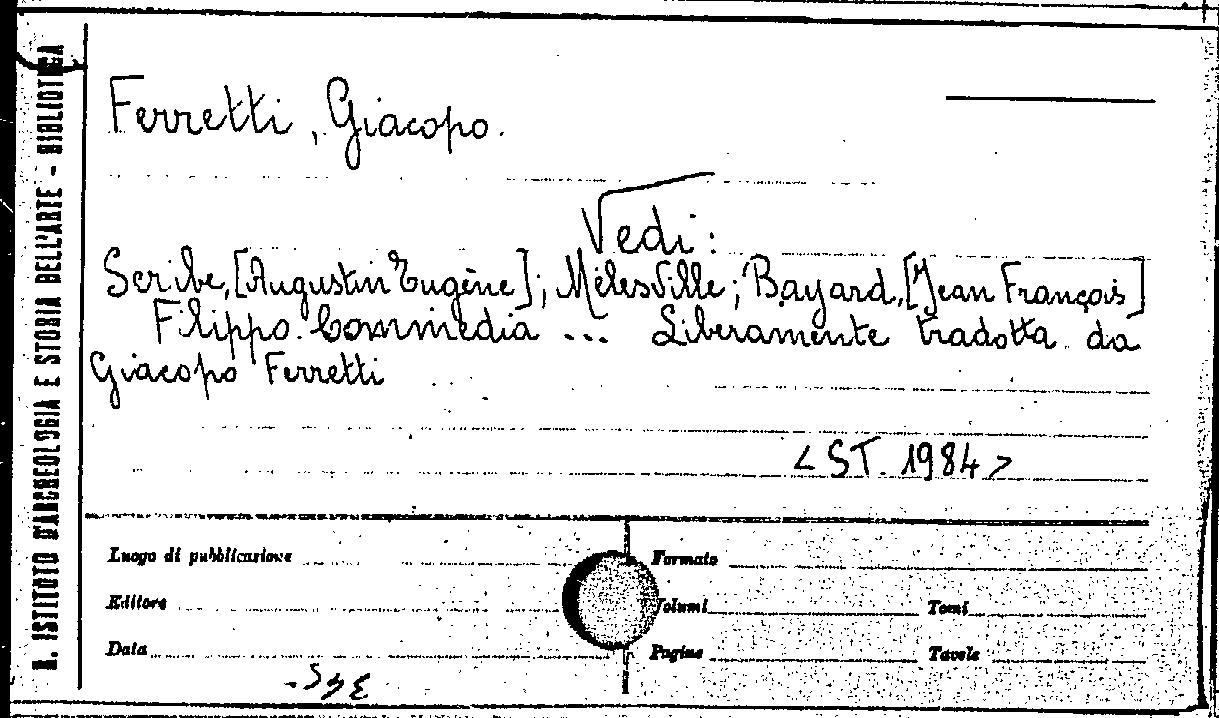 R. ISTITUTO D'ARCHEOLOGIA E STORIA DELL'ARTE - BIBLIOTECA
Ferretti, Giacopo.
Vedi:
Scribe, [Augustin Eugène]; Mélesville; Bayard, [Jean François]
Filippo. Commedia ... Liberamente tradotta da
Giacopo Ferretti
<ST. 1984>
Luogo di pubblicazione
Formato
Editore
Volumi
Tomi
Data
Pagine
Tavole